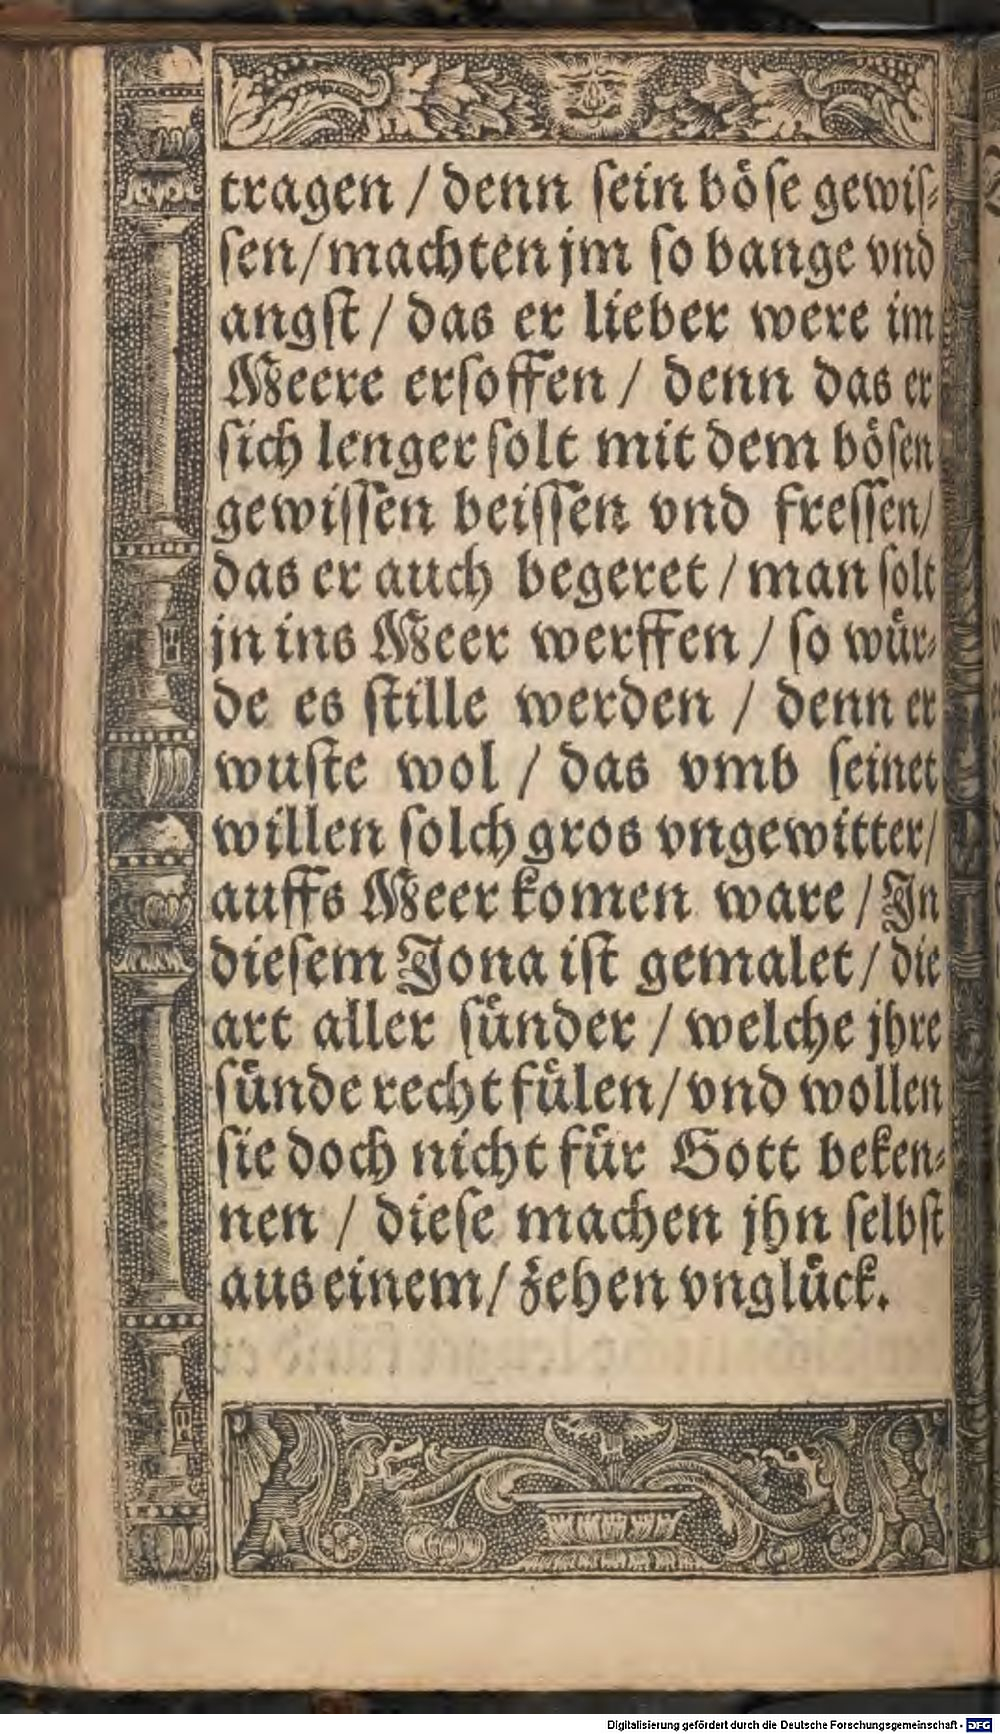 tragen / denn sein böse gewis-
sen / machten jm so bange vnd
angst / das er lieber were im
Meere ersoffen / denn das er
sich lenger solt mit dem bösen
gewissen beissen vnd fressen /
das er auch begeret / man solt
jn ins Meer werffen / so wür-
de es stille werden / denn er
wuste wol / das vmb seinet
willen solch gros vngewitter /
auffs Meer komen ware / In
diesem Jona ist gemalet / die
art aller sünder / welche jhre
sünde recht fülen / vnd wollen
sie doch nicht für Gott beken-
nen / diese machen jhn selbst
aus einem / zehen vnglück.
Digitalisierung gefördert durch die Deutsche Forschungsgemeinschaft - DFG